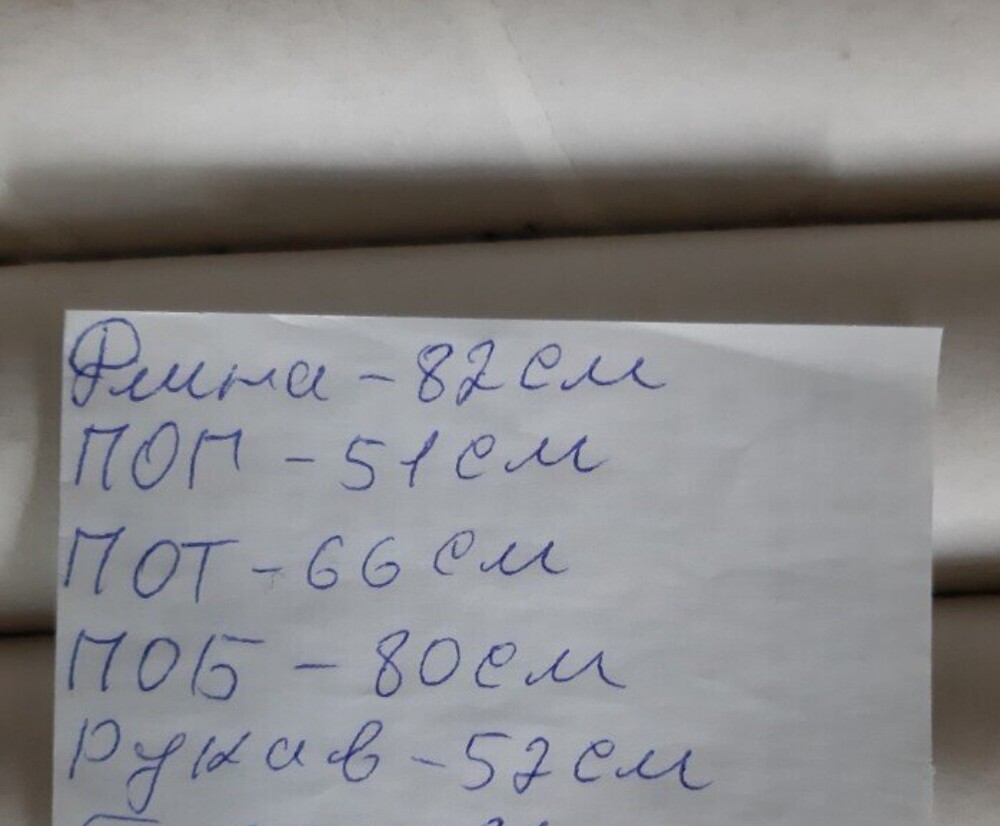 Длина - 82 см
ПОГ - 51 см
ПОТ - 66 см
ПОБ - 80 см
Рукав - 52 см